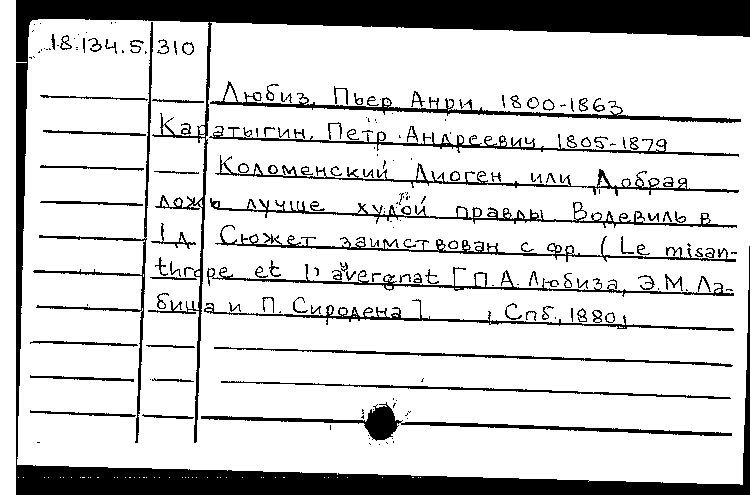 18.134.5.310
Любиз, Пьер Анри, 1800-1863
Каратыгин, Петр Андреевич, 1805-1879
Коломенский Диоген, или Добрая
ложь лучше худой правды Водевиль в
1 д. Сюжет заимствован с фр. (Le misan-
thrope et l'auvergnat [П.А. Любиза, Э.М. Ла-
биша и П. Сиродена]. Спб., 1880